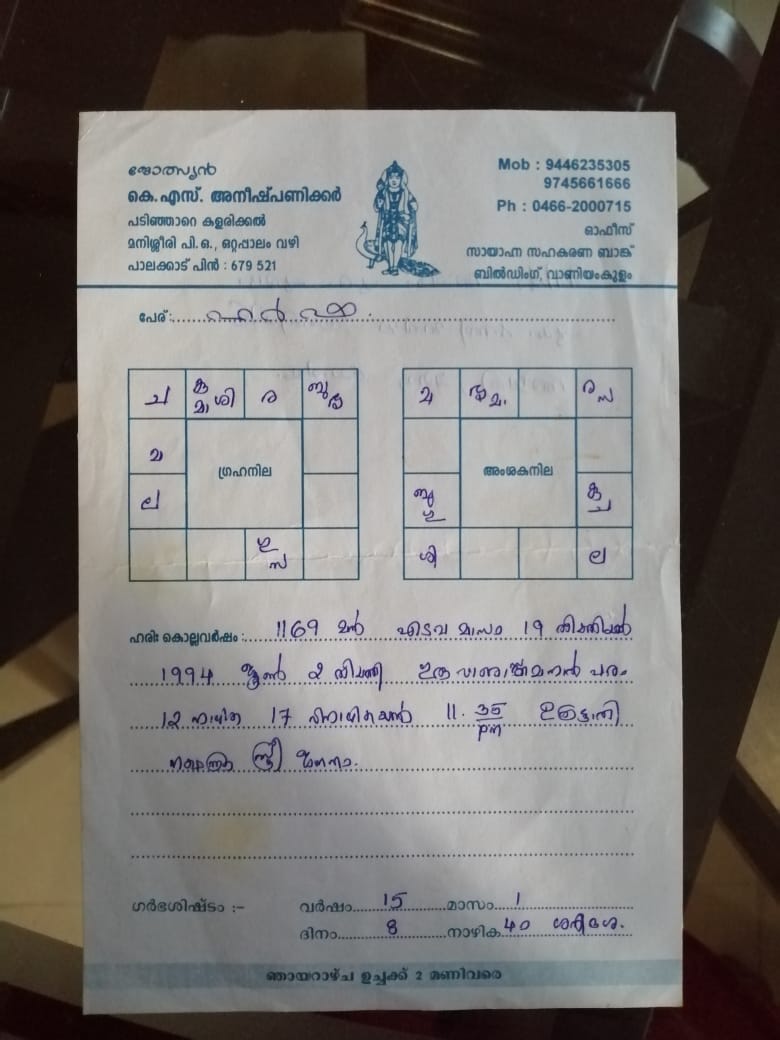 ജ്യോത്സ്യൻ
കെ.എസ്. അനീഷ്പണിക്കർ
പടിഞ്ഞാറെ കളരിക്കൽ
മനിശ്ശീരി പി.ഒ., ഒറ്റപ്പാലം വഴി
പാലക്കാട് പിൻ : 679 521
Mob : 9446235305
9745661666
Ph : 0466-2000715
ഓഫീസ്
സായാഹ്ന സഹകരണ ബാങ്ക്
ബിൽഡിംഗ്, വാണിയംകുളം
പേര് :
ച കു മാ ശി ര ബു
മ
ല
ഗ്രഹനില
ഗു സ
മ മാ ര സ
ബു ഗു
അംശകനില
കു ച
ശി ല
ഹരിഃ കൊല്ലവർഷം : 1169 മൻ എടവ മാസം 19
1994 ജൂൺ 2
12 നാഴിക 17 11.35 pm
സ്ത്രീ ജനനം.
ഗർഭശിഷ്ടം :- വർഷം 15 മാസം 1
ദിനം 8 നാഴിക 40
ഞായറാഴ്ച ഉച്ചക്ക് 2 മണിവരെ